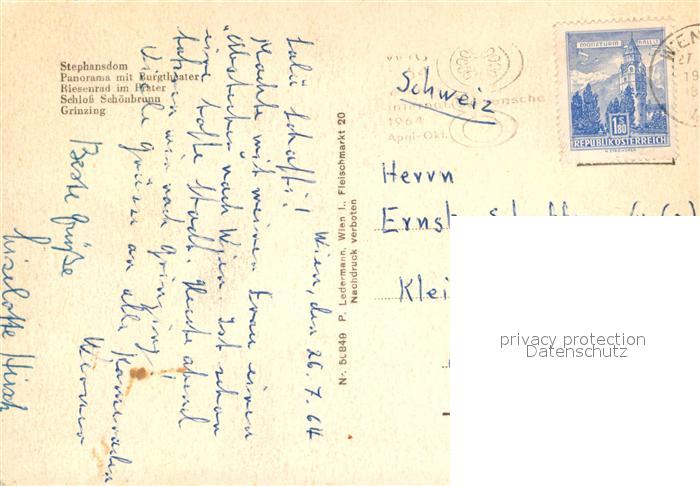 Stephansdom
Panorama mit Burgtheater
Riesenrad im Prater
Schloß Schönbrunn
Grinzing
Wien, den 26.7.64
Salü Schaffi!
Mache mit meiner Frau einen
"Abstecher" nach Wien. Ist schon
eine tolle Stadt. Heute abend
fahren wir nach Grinzing!
Viele Grüsse an alle Kameraden
Werner
Beste Grüße
Liselotte Hirsch
Nr. 50849 P. Ledermann, Wien I., Fleischmarkt 20
Nachdruck verboten
WIEN
1964
April-Okt.
MÜNZTURM HALL I. T.
1 S 80
REPUBLIK ÖSTERREICH
WIEN
27
Schweiz
Herrn
Ernst
Klei
privacy protection
Datenschutz